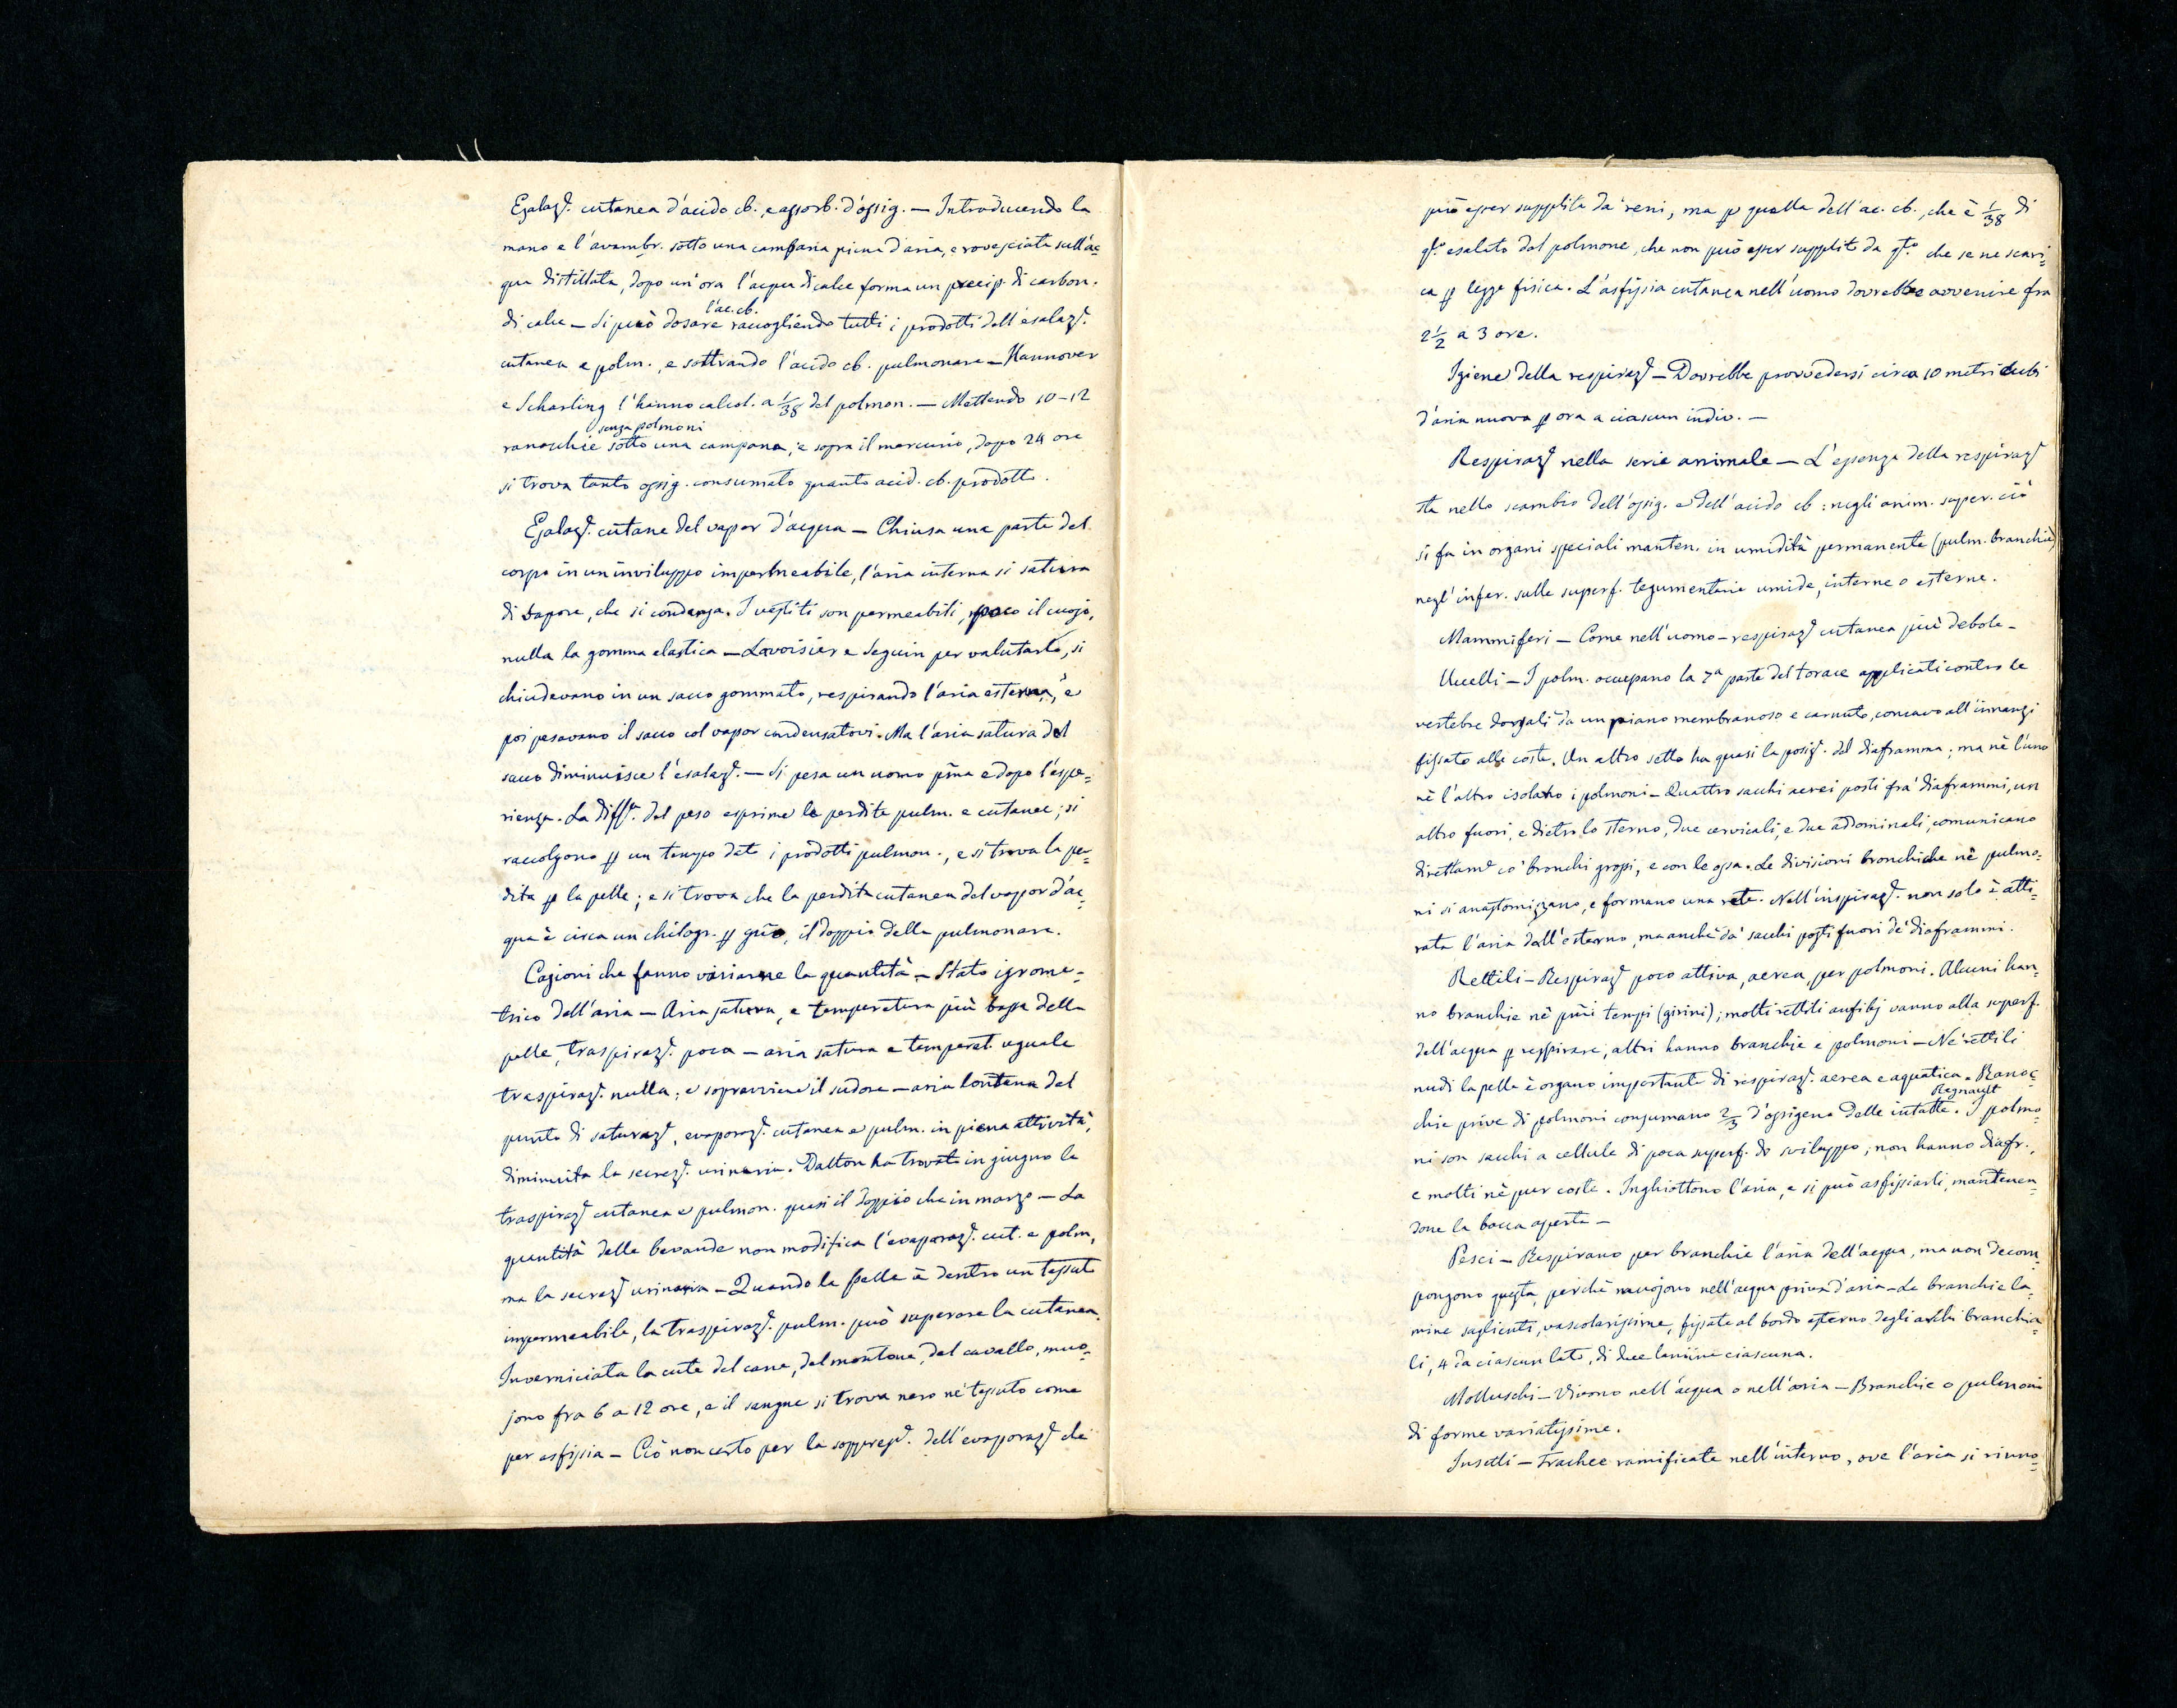 Esalazᵉ. cutanea d'acido cb. e assorb. d'ossig. — Introducendo la
mano e l'avambr. sotto una campana piena d'aria, e rovesciata sull'ac=
qua distillata, dopo un'ora l'acqua di calce forma un precip. di carbon.
l'ac. cb.
di calce — Si può dosare raccogliendo tutti i prodotti dell'esalazᵉ.
cutanea e polm., e sottrando l'acido cb. pulmonare — Hannover
e Scharling l'hanno calcol. a 1/38 del polmon. — Mettendo 10-12
senza polmoni
ranocchie sotto una campana, e sopra il mercurio, dopo 24 ore
si trova tanto ossig. consumato quanto acid. cb. prodotto.
Esalazᵉ. cutane del vapor d'acqua — Chiusa una parte del
corpo in un inviluppo impermeabile, l'aria interna si satura
di vapore, che si condensa. I vestiti son permeabili, poco il cuojo,
nulla la gomma elastica — Lavoisier e Seguin per valutarlo, si
chiudevano in un sacco gommato, respirando l'aria esterna, e
poi pesavano il sacco col vapor condensatovi. Ma l'aria satura del
sacco diminuisce l'esalazᵉ. — Si pesa un uomo pr̃ma e dopo l'espe=
rienza. La diffᵃ. del peso esprime le perdite pulm. e cutanee; si
raccolgono ꝑ un tempo dato i prodotti pulmon., e si trova la per=
dita ꝑ la pelle; e si trova che la perdita cutanea del vapor d'ac=
qua è circa un chilogr. ꝑ gño, il doppio della pulmonare.
Cagioni che fanno variarne la quantità — Stato igrome=
trico dell'aria — Aria satura, e temperatura più bassa della
pelle, traspirazᵉ. poca — aria satura e temperat. uguale
traspirazᵉ. nulla; e sopravviene il sudore — aria lontana dal
punto di saturazᵉ, evaporazᵉ. cutanea e pulm. in piena attività,
diminuita la secrezᵉ. urinaria. Dalton ha trovato in giugno la
traspirazᵉ cutanea e pulmon. quasi il doppio che in marzo — La
quantità delle bevande non modifica l'evaporazᵉ. cut. e polm,
ma la secrezᵉ urinaria — Quando la pelle è dentro un tessuto
impermeabile, la traspirazᵉ. pulm. può superare la cutanea.
Inverniciata la cute del cane, del montone, del cavallo, muo=
jono fra 6 a 12 ore, e il sangue si trova nero ne' tessuti come
per asfissia — Ciò non certo per la soppresᵉ. dell'evaporazᵉ che
può esser supplita da' reni, ma ꝑ quella dell'ac. cb., che è 1/38 di
qᵒ. esalato dal polmone, che non può esser supplito da qᵗᵒ. che se ne scari=
ca ꝑ legge fisica. L'asfissia cutanea nell'uomo dovrebbe avvenire fra
2 1/2 a 3 ore.
Igiene della respirazᵉ — Dovrebbe provvedersi circa 10 metri cubi
d'aria nuova ꝑ ora a ciascun indiv. —
Respirazᵉ nella serie animale — L'essenza della respirazᵉ
sta nello scambio dell'ossig. e dell'acido cb: negli anim. super. ciò
si fa in organi speciali manten. in umidità permanente (pulm. branchie)
negl'infer. sulle superf. tegumentarie umide, interne o esterne.
Mammiferi — Come nell'uomo — respirazᵉ cutanea più debole —
Uccelli — I polm. occupano la 7ª parte del torace applicati contro le
vertebre dorsali da un piano membranoso e carnuto, concavo all'innanzi
fissato alle coste. Un altro setto ha quasi la posizᵉ. del diaframma; ma nè l'uno
nè l'altro isolano i polmoni — Quattro sacchi aerei posti fra' diaframmi, un
altro fuori, e dietro lo sterno, due cervicali, e due addominali, comunicano
direttamᵉ co' bronchi grossi, e con le ossa. Le divisioni bronchiche ne' pulmo=
ni si anastomizzano, e formano una rete. Nell'inspirazᵉ. non solo è atti=
rata l'aria dall'esterno, ma anche da' sacchi posti fuori de' diaframmi.
Rettili — Respirazᵉ poco attiva, aerea, per polmoni. Alcuni han=
no branchie ne' pr̃mi tempi (girini); molti rettili anfibj vanno alla superf.
dell'acqua ꝑ respirare, altri hanno branchie e polmoni — Ne' rettili
nudi la pelle è organo importante di respirazᵉ. aerea e aquatica. Ranoc=
Regnault
chie prive di polmoni consumano 2/3 d'ossigeno delle intatte. I polmo=
ni son sacchi a cellule di poca superf. di sviluppo; non hanno diafr.,
e molti nè pur coste. Inghiottono l'aria, e si può asfissiarli, mantenen=
done la bocca aperta —
Pesci — Respirano per branchie l'aria dell'acqua, ma non decom=
pongono questa, perchè muojono nell'acqua priva d'aria — Le branchie la=
mine saglienti, vascolarissime, fissate al bordo esterno degli archi branchia=
li, 4 da ciascun lato, di due lamine ciascuna.
Molluschi — Vivono nell'acqua o nell'aria — Branchie o pulmoni
di forme variatissime.
Insetti — Trachee ramificate nell'interno, ove l'aria si rinno=